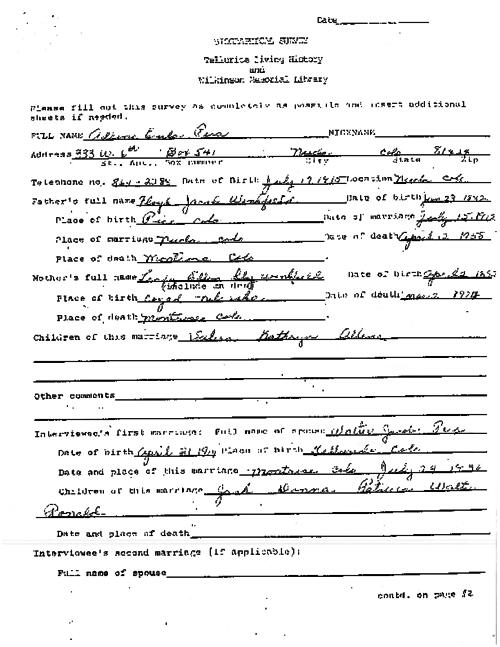 Date
BIOGRAPHICAL SURVEY
Telluride Living History
and
Wilkinson Memorial Library
Please fill out this survey as completely as possible and insert additional
sheets if needed.
FULL NAME Pera NICKNAME
Address 333 W. 6th Box 541 Nucla Colo 81424
St., Apt., Box number City State Zip
Telephone no. 864-2284 Date of Birth July 17 1915 Location Nucla Colo.
Father's full name Floyd Jacob Date of birth 23 1892
Place of birth Rico Colo Date of marriage July 15 1912
Place of marriage Nucla Colo Date of death April 12 1955
Place of death Montrose Colo
Mother's full name Ellen Date of birth
(include maiden)
Place of birth Date of death 1974
Place of death Montrose Colo.
Children of this marriage Kathryn
Other comments
Interviewee's first marriage: Full name of spouse Walter Jacob Pera
Date of birth April 21 Place of birth Telluride Colo.
Date and place of this marriage Montrose Colo July 24
Children of this marriage Jack Donna Patricia Walter
Ronald
Date and place of death
Interviewee's second marriage (if applicable):
Full name of spouse
contd. on page #2